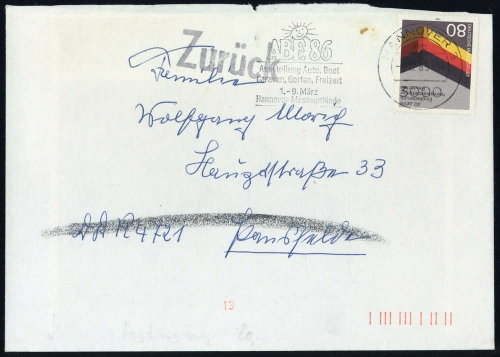 Zurück
A·B·F· 86
Ausstellung Auto, Boot
Caravan, Garten, Freizeit
1.–9. März
Hannover-Messegelände
HANNOVER
80
Familie
Wolfgang Morich
Hauptstraße 33
DDR 4721 Pansfelde
13